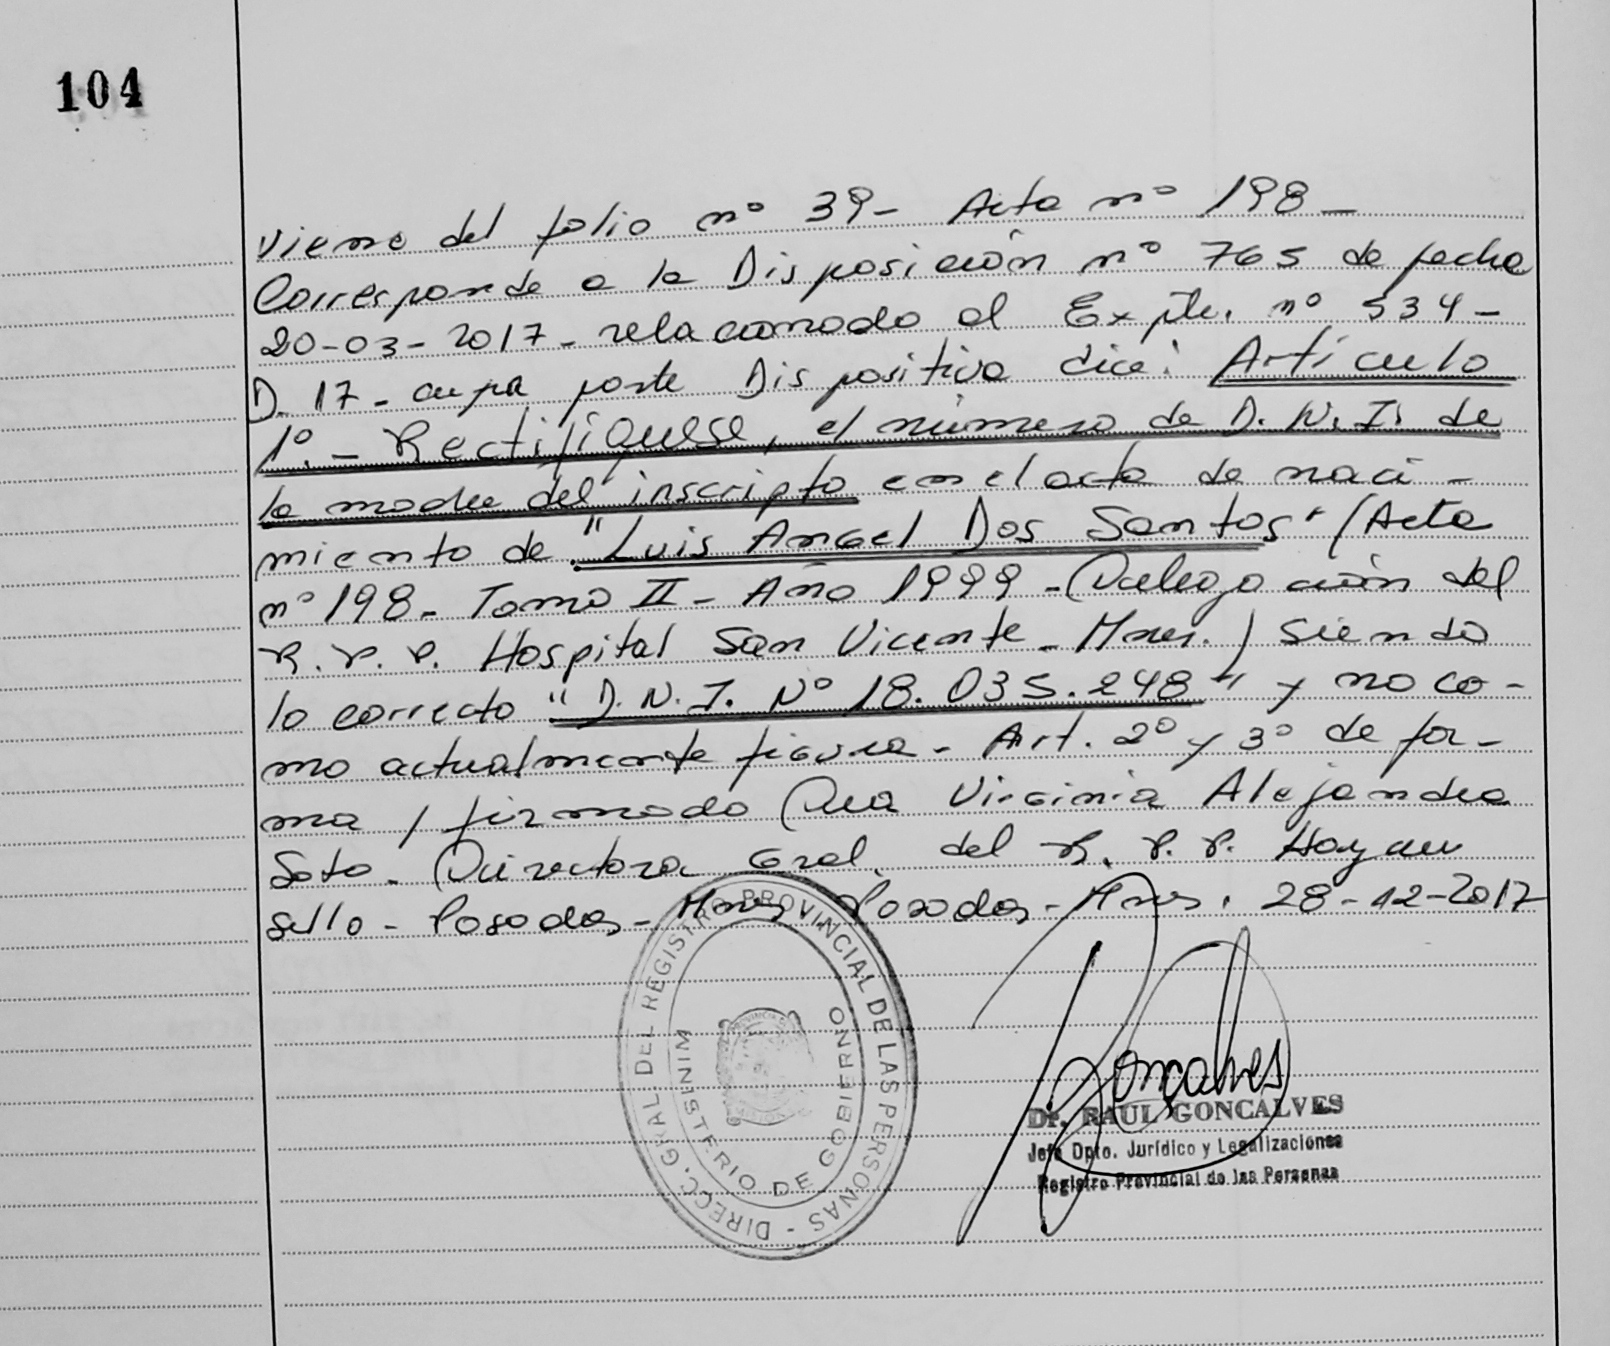 104
Viene del folio nº 39- Acta nº 198-
Corresponde a la Disposición nº 765 de fecha
20-03-2017- relacionado al Expte. nº 534-
D. 17- cuya parte Dispositiva dice: Artículo
1º.- Rectifíquese, el número de D.N.I. de
la madre del inscripto en el acta de naci-
miento de "Luis Angel Dos Santos" (Acta
nº 198- Tomo II- Año 1999-Delegación del
R.P.P. Hospital San Vicente-Mnes.) siendo
lo correcto "D.N.I. Nº 18.035.248" y no co-
mo actualmente figura- Art. 2º y 3º de for-
ma / firmado Dra Virginia Alejandra
Soto- Directora Gral del R.P.P. Hay un
sello- Posadas-Mnes Posadas-Mnes. 28-12-2017
DIRECC. GRAL. DEL REGISTRO PROVINCIAL DE LAS PERSONAS -
MINISTERIO DE GOBIERNO
Goncalves
Dr. RAUL GONCALVES
Jefe Dpto. Jurídico y Legalizaciones
Registro Provincial de las Personas